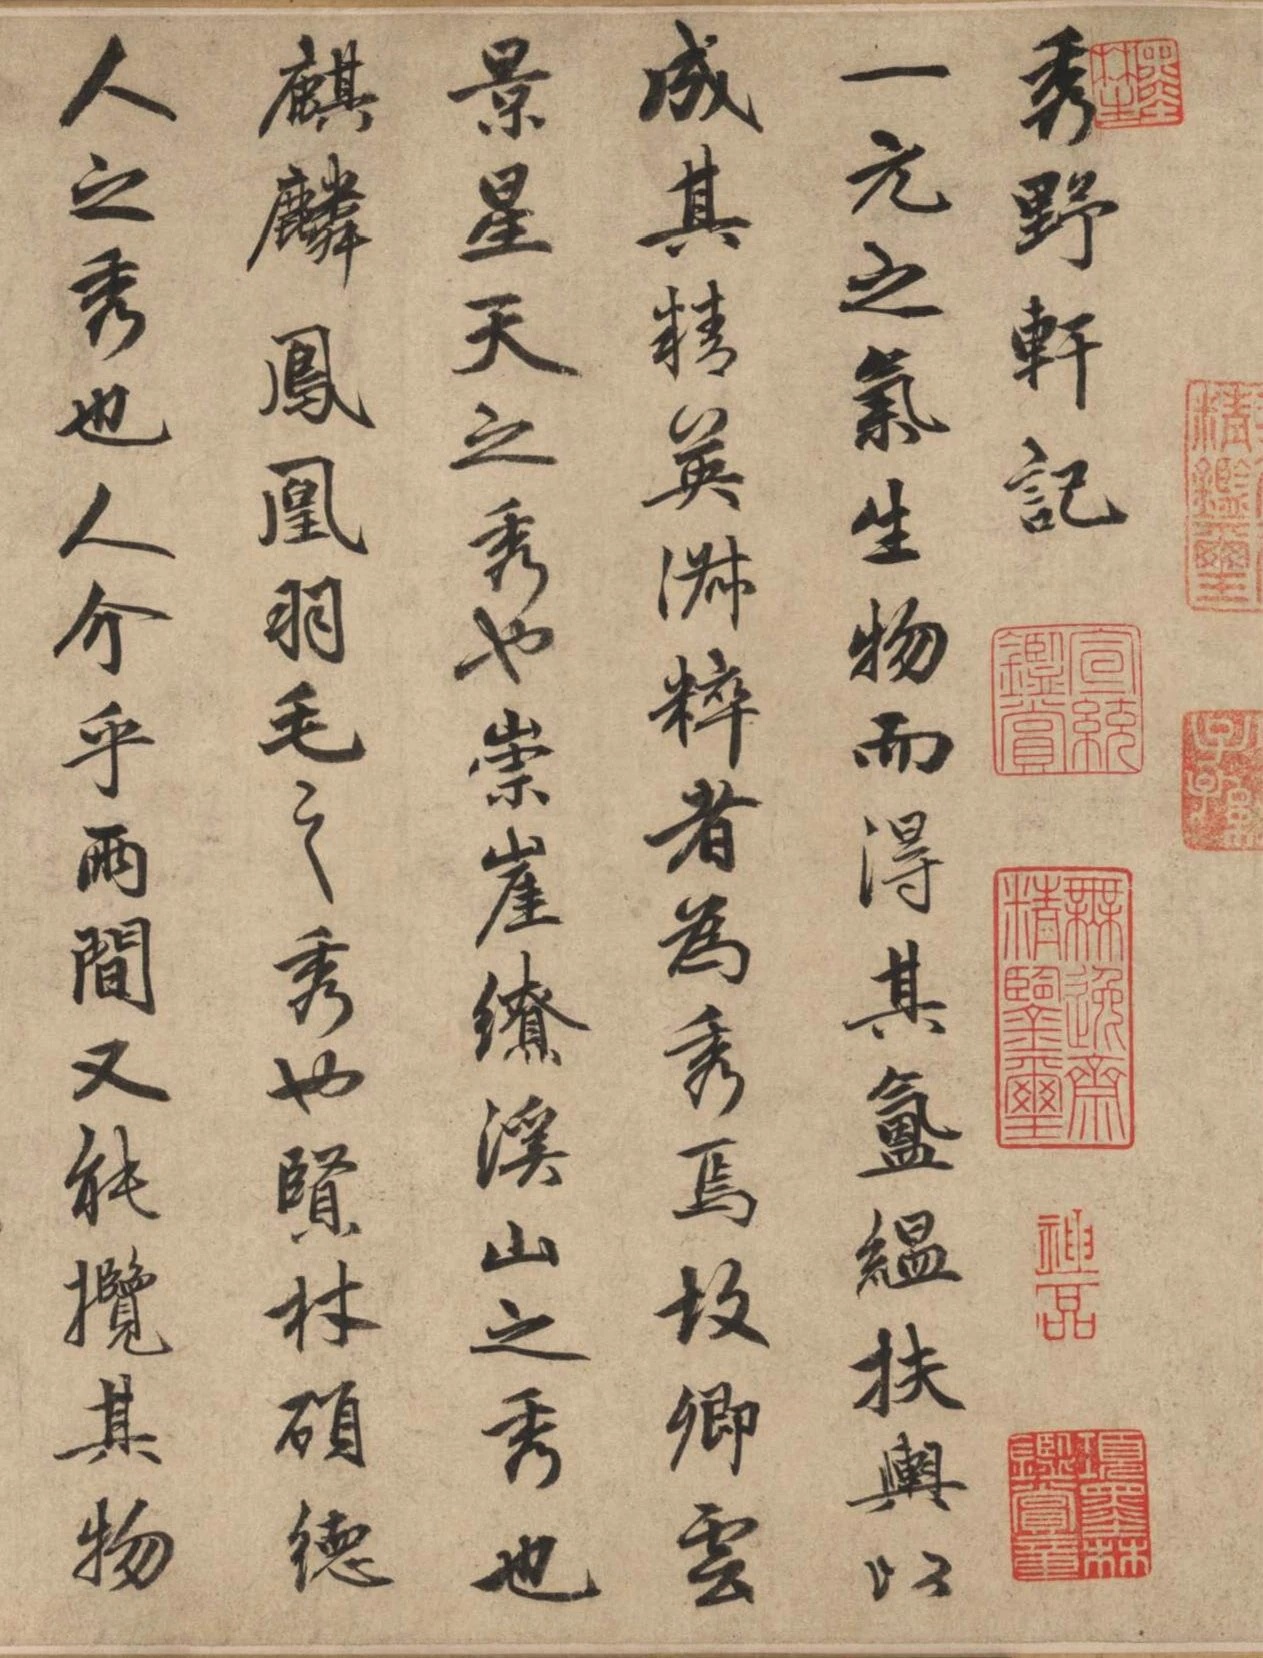 秀野軒記
一元之氣生物而得其氳縕扶輿以
成其精英淋粹者為秀焉故卿雲
景星天之秀也崇崖繚溪山之秀也
麒麟鳳凰羽毛之秀也賢材碩德
人之秀也人介乎兩間又能攬其物
墨林
宣統鑑賞
無逸齋精鑒璽
神品
項墨林鑑賞章
精鑑璽